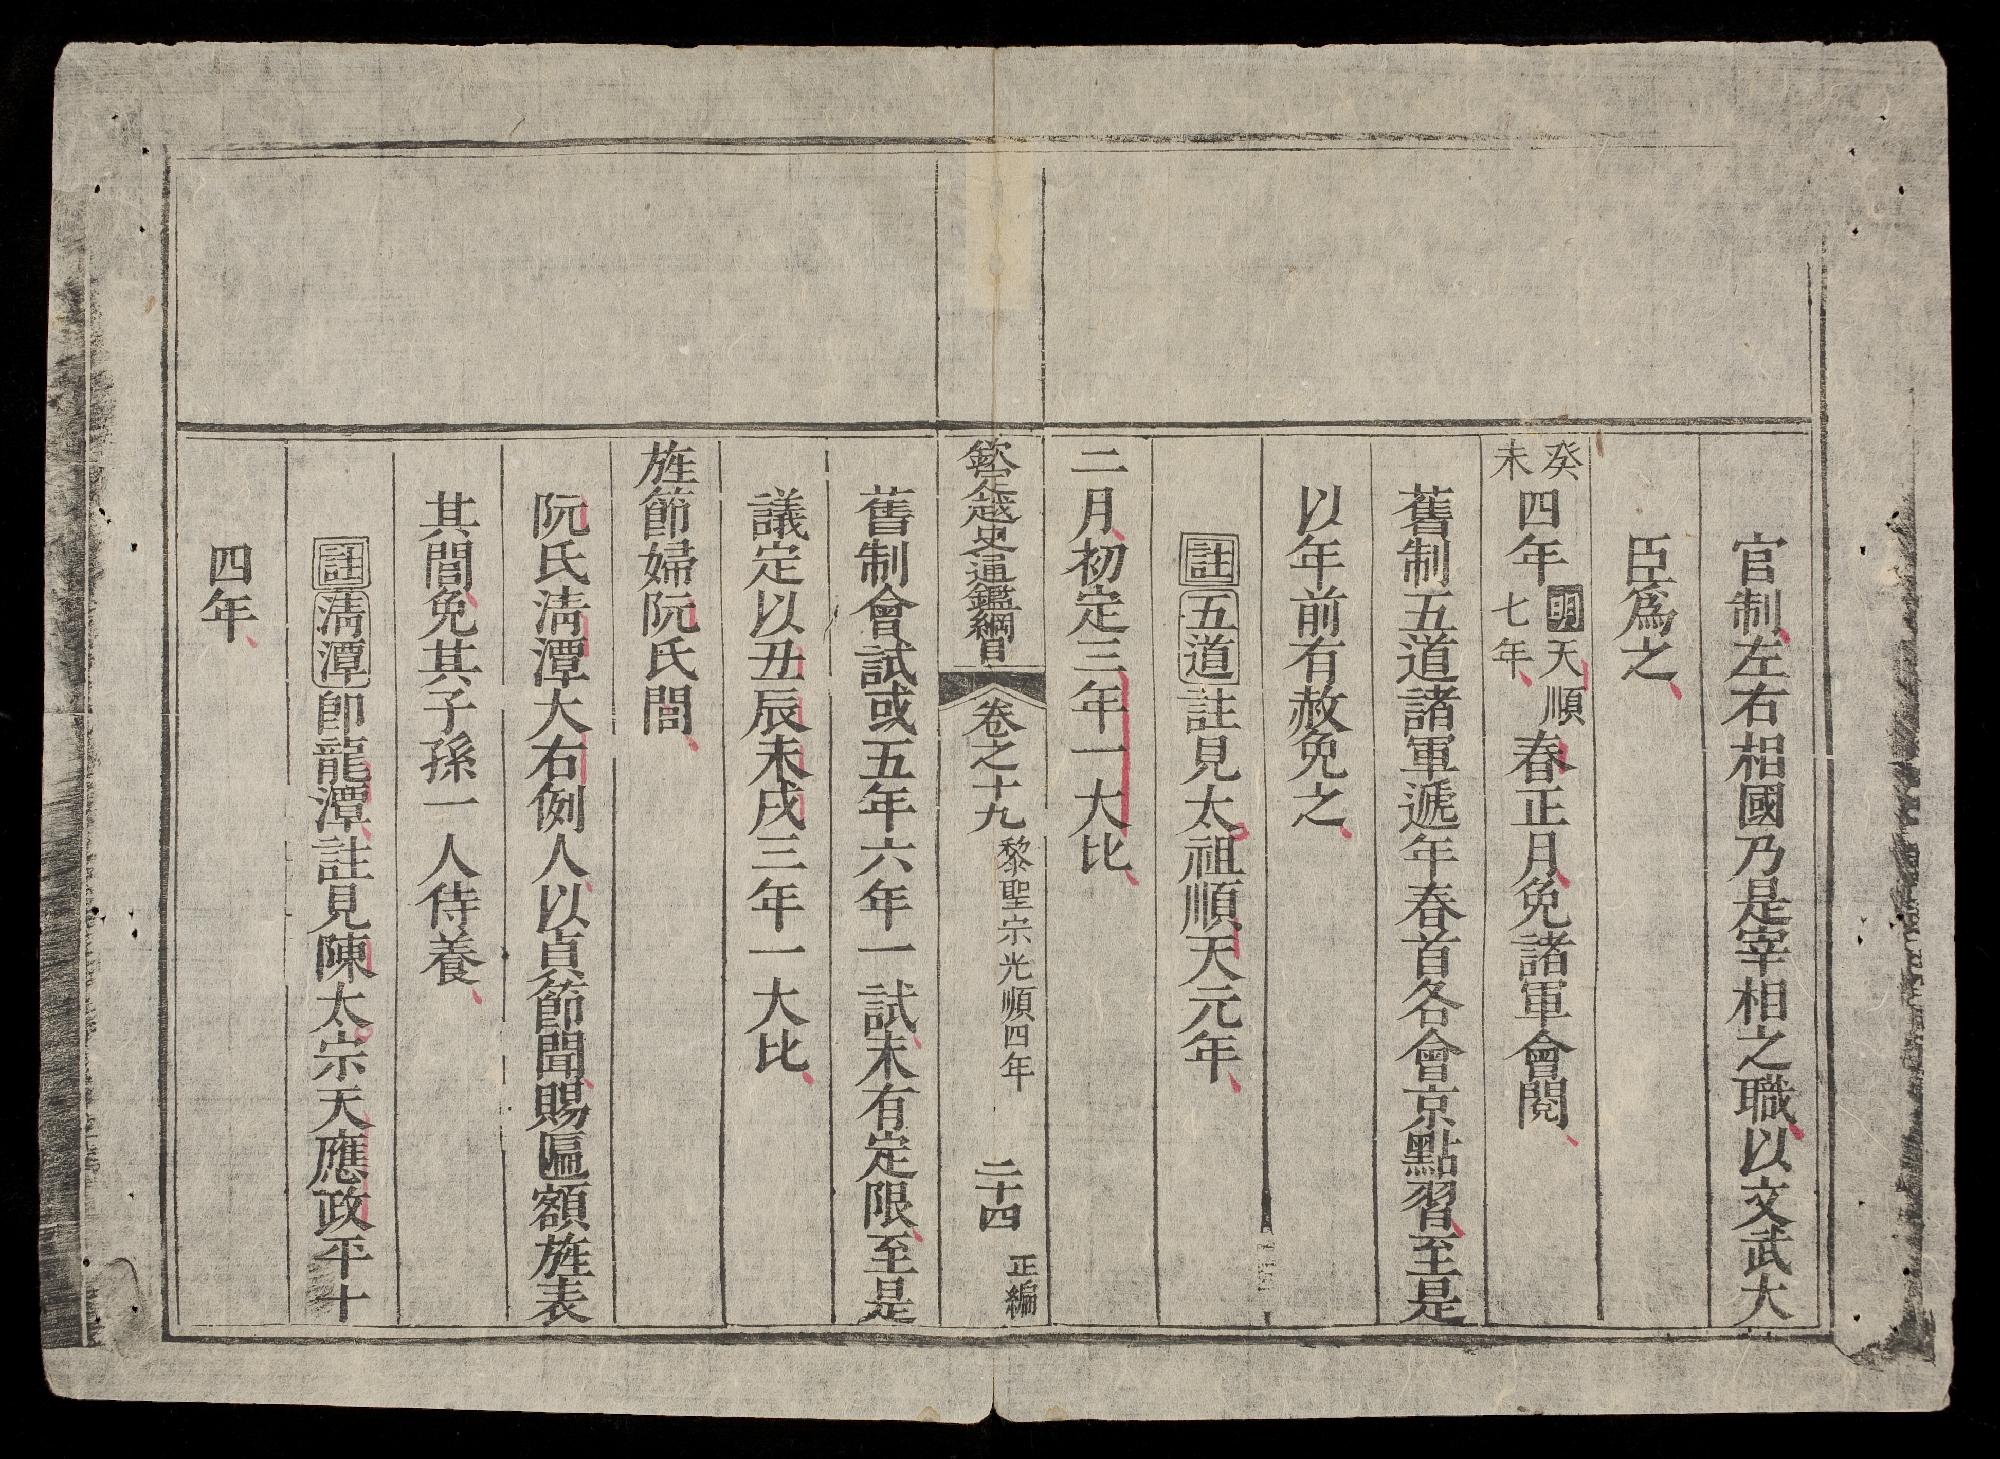 官制左右相國乃是宰相之職以文武大
臣爲之
癸未四年明天順七年春正月免諸軍會閱
舊制五道諸軍遞年春首各會京點習至是
以年前有赦免之
註五道註見太祖順天元年
二月初定三年一大比
欽定越史通鑑綱目 卷之十九 黎聖宗光順四年 二十四 正編
舊制會試或五年六年一試未有定限至是
議定以丑辰未戌三年一大比
旌節婦阮氏閭
阮氏淸潭大右例人以貞節聞賜匾額旌表
其閭免其子孫一人侍養
註淸潭卽龍潭註見陳太宗天應政平十
四年